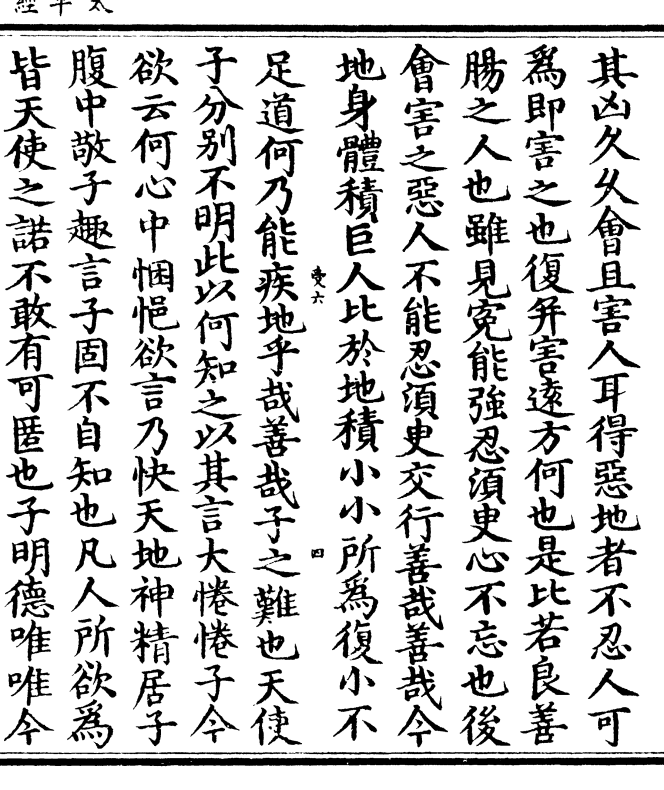 太平經
其凶久久會且害人耳得惡地者不忍人可
爲即害之也復并害遠方何也是比若良善
腸之人也雖見寃能強忍須臾心不忘也後
會害之惡人不能忍須臾交行善哉善哉今
地身體積巨人比於地積小小所爲復小不
受六 四
足道何乃能疾地乎哉善哉子之難也天使
子分別不明此以何知之以其言大惓惓子今
欲云何心中悃悒欲言乃快天地神精居子
腹中敬子趣言子固不自知也凡人所欲爲
皆天使之諾不敢有可匿也子明德唯唯今